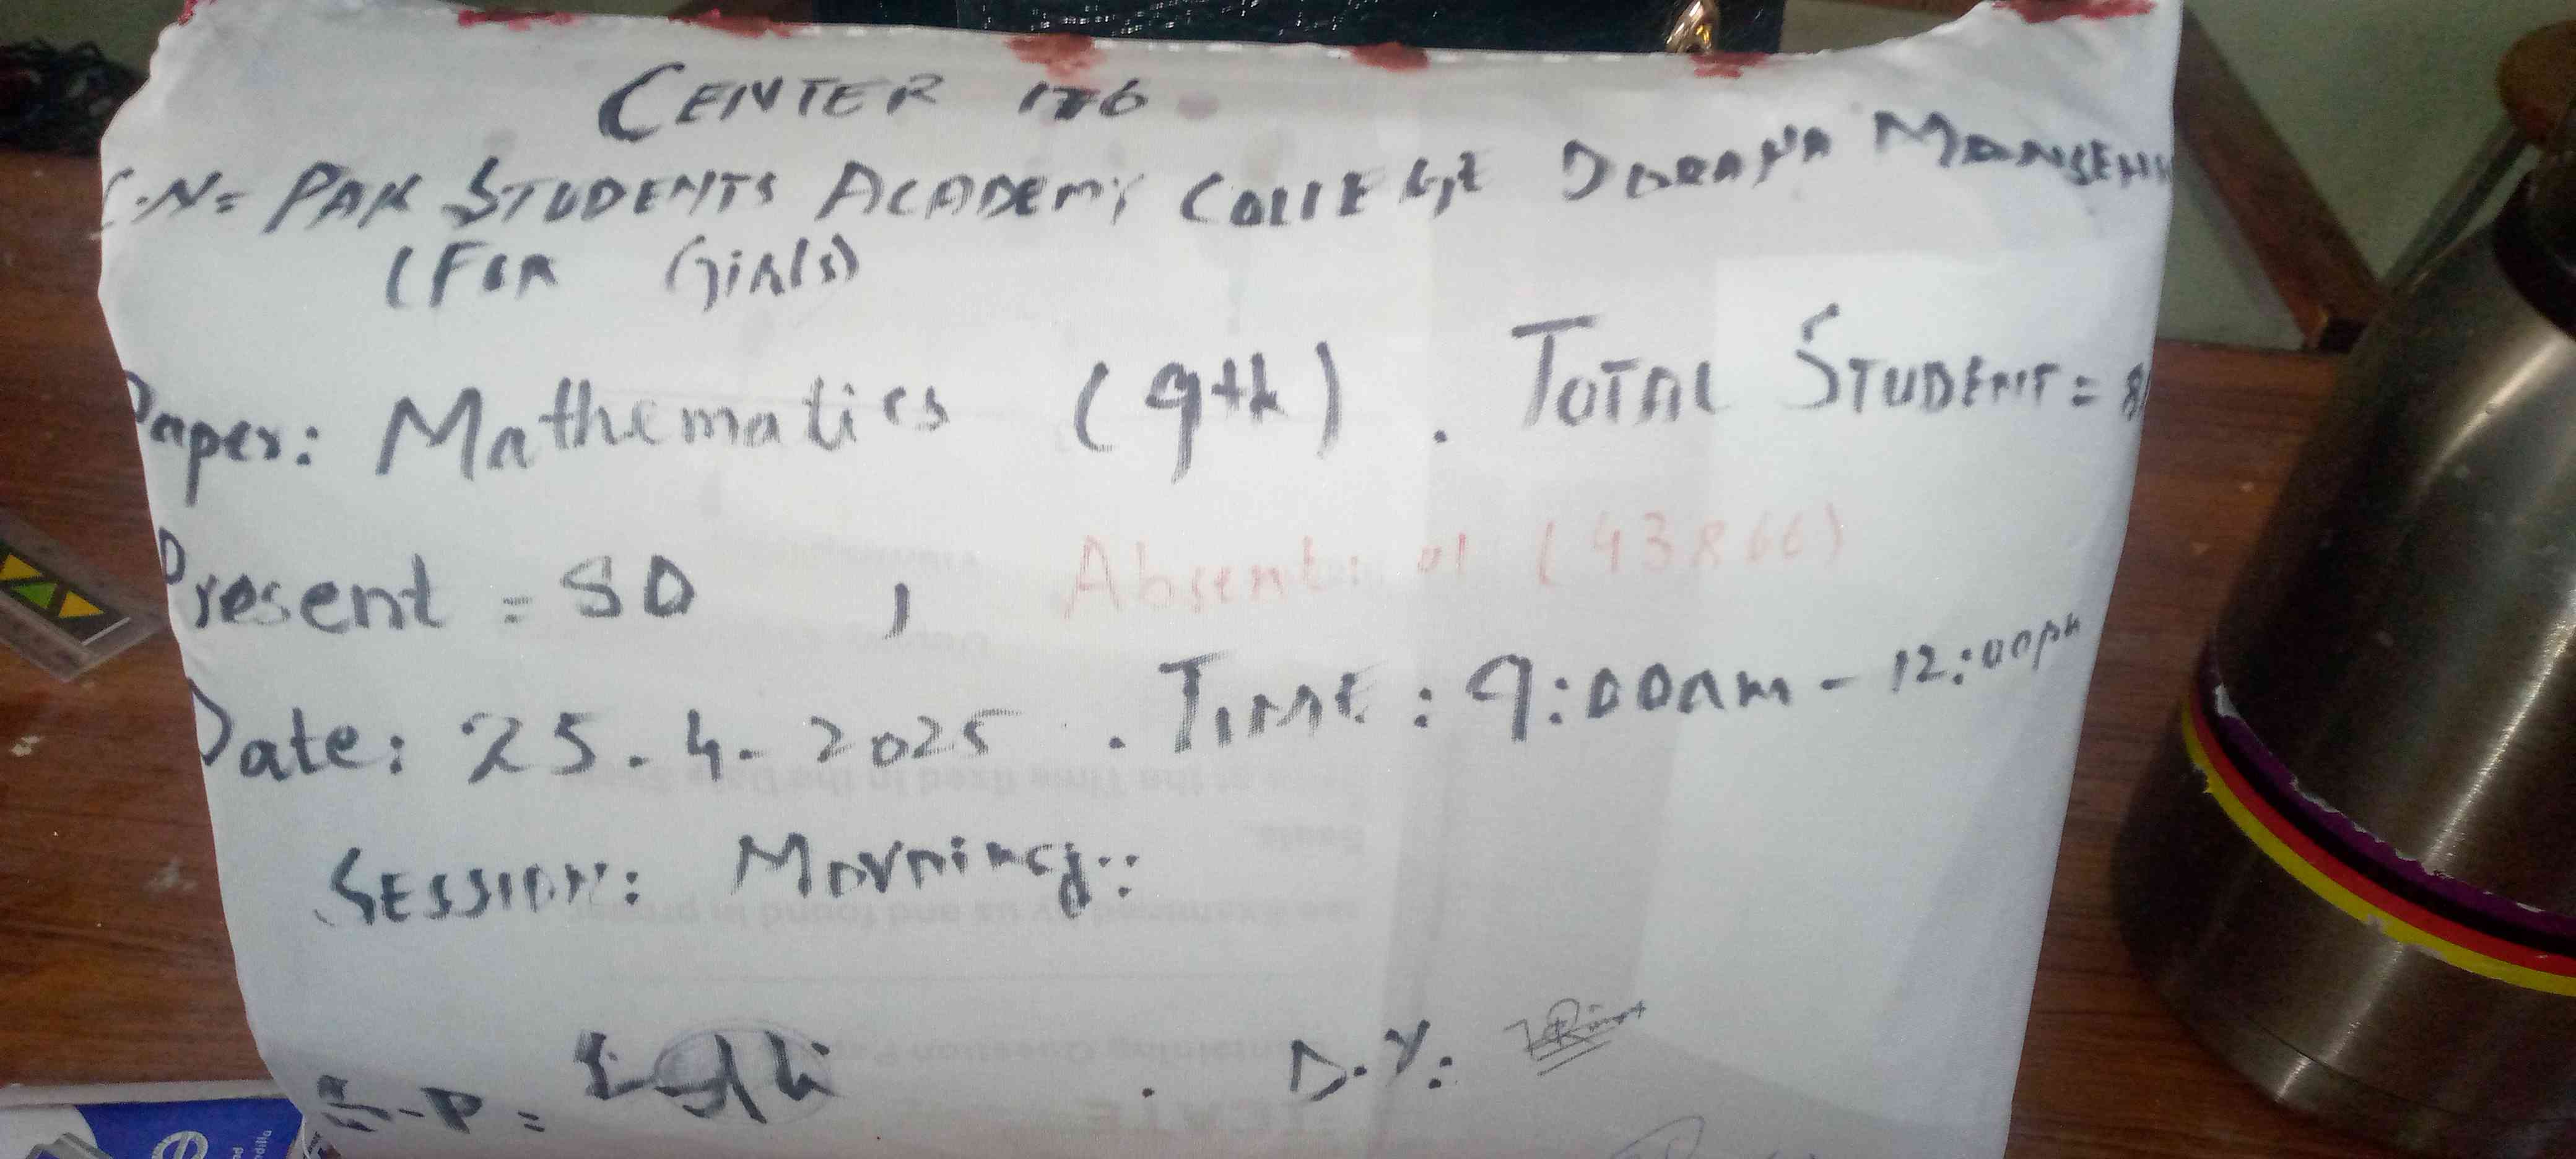 CENTER 176
C.N= PAK STUDENTS ACADEMY COLLEGE DORAHA MANSEHR
(FOR Girls)
Paper: Mathematics (9th) . TOTAL STUDENT = 8
Present = 80 , Absent: 01 (43866)
Date: 25.4.2025 . TIME: 9:00am - 12:00pm
SESSION: Morning::
S.P = . D.Y: